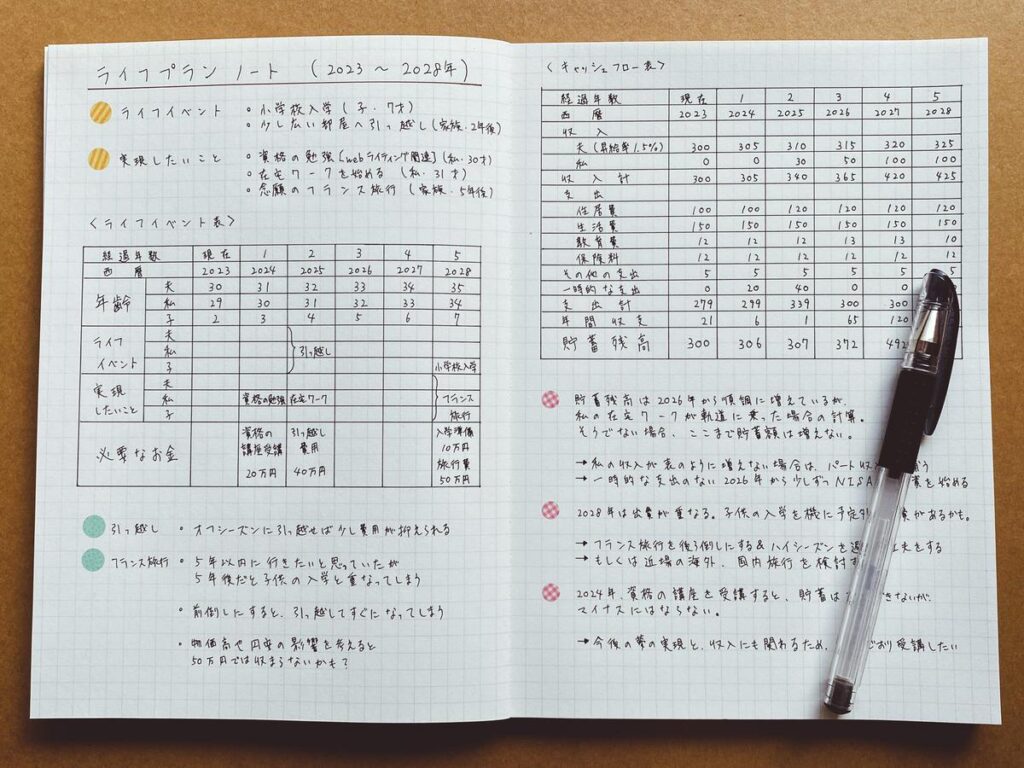 ライフプランノート (2023〜2028年)
ライフイベント
・小学校入学(子・7才)
・少し広い部屋へ引っ越し(家族・2年後)
実現したいこと
・資格の勉強[webライティング関連](私・30才)
・在宅ワークを始める (私・31才)
・念願のフランス旅行 (家族・5年後)
〈ライフイベント表〉
経過年数 現在 1 2 3 4 5
西暦 2023 2024 2025 2026 2027 2028
年齢
夫 30 31 32 33 34 35
私 29 30 31 32 33 34
子 2 3 4 5 6 7
ライフ
イベント
夫
私 引っ越し
子 小学校入学
実現
したいこと
夫
私 資格の勉強 在宅ワーク フランス
子 旅行
必要なお金
資格の
講座受講
20万円
引っ越し
費用
40万円
入学準備
10万円
旅行費
50万円
引っ越し ・オフシーズンに引っ越せば少し費用が抑えられる
フランス旅行 ・5年以内に行きたいと思っていたが
5年後だと子供の入学と重なってしまう
・前倒しにすると、引っ越してすぐになってしまう
・物価高や円安の影響を考えると
50万円では収まらないかも?
〈キャッシュフロー表〉
経過年数 現在 1 2 3 4 5
西暦 2023 2024 2025 2026 2027 2028
収入
夫(昇給率1.5%) 300 305 310 315 320 325
私 0 0 30 50 100 100
収入計 300 305 340 365 420 425
支出
住居費 100 100 120 120 120 120
生活費 150 150 150 150 150 150
教育費 12 12 12 13 13 10
保険料 12 12 12 12 12 12
その他の支出 5 5 5 5 5 5
一時的な支出 0 20 40 0 0
支出計 279 299 339 300 300
年間収支 21 6 1 65 120
貯蓄残高 300 306 307 372 492
貯蓄残高は2026年から順調に増えているが、
私の在宅ワークが軌道に乗った場合の計算。
そうでない場合、ここまで貯蓄額は増えない。
→私の収入が表のように増えない場合は、パート収
→一時的な支出のない2026年から少しずつNISA 資を始める
2028年は出費が重なる。子供の入学を機に予定外 費があるかも。
→フランス旅行を後ろ倒しにする&ハイシーズンを 夫をする
→もしくは近場の海外、国内旅行を検討す
2024年、資格の講座を受講すると、貯蓄は できないが、
マイナスにはならない。
→今後の夢の実現と、収入にも関わるため、 どおり受講したい